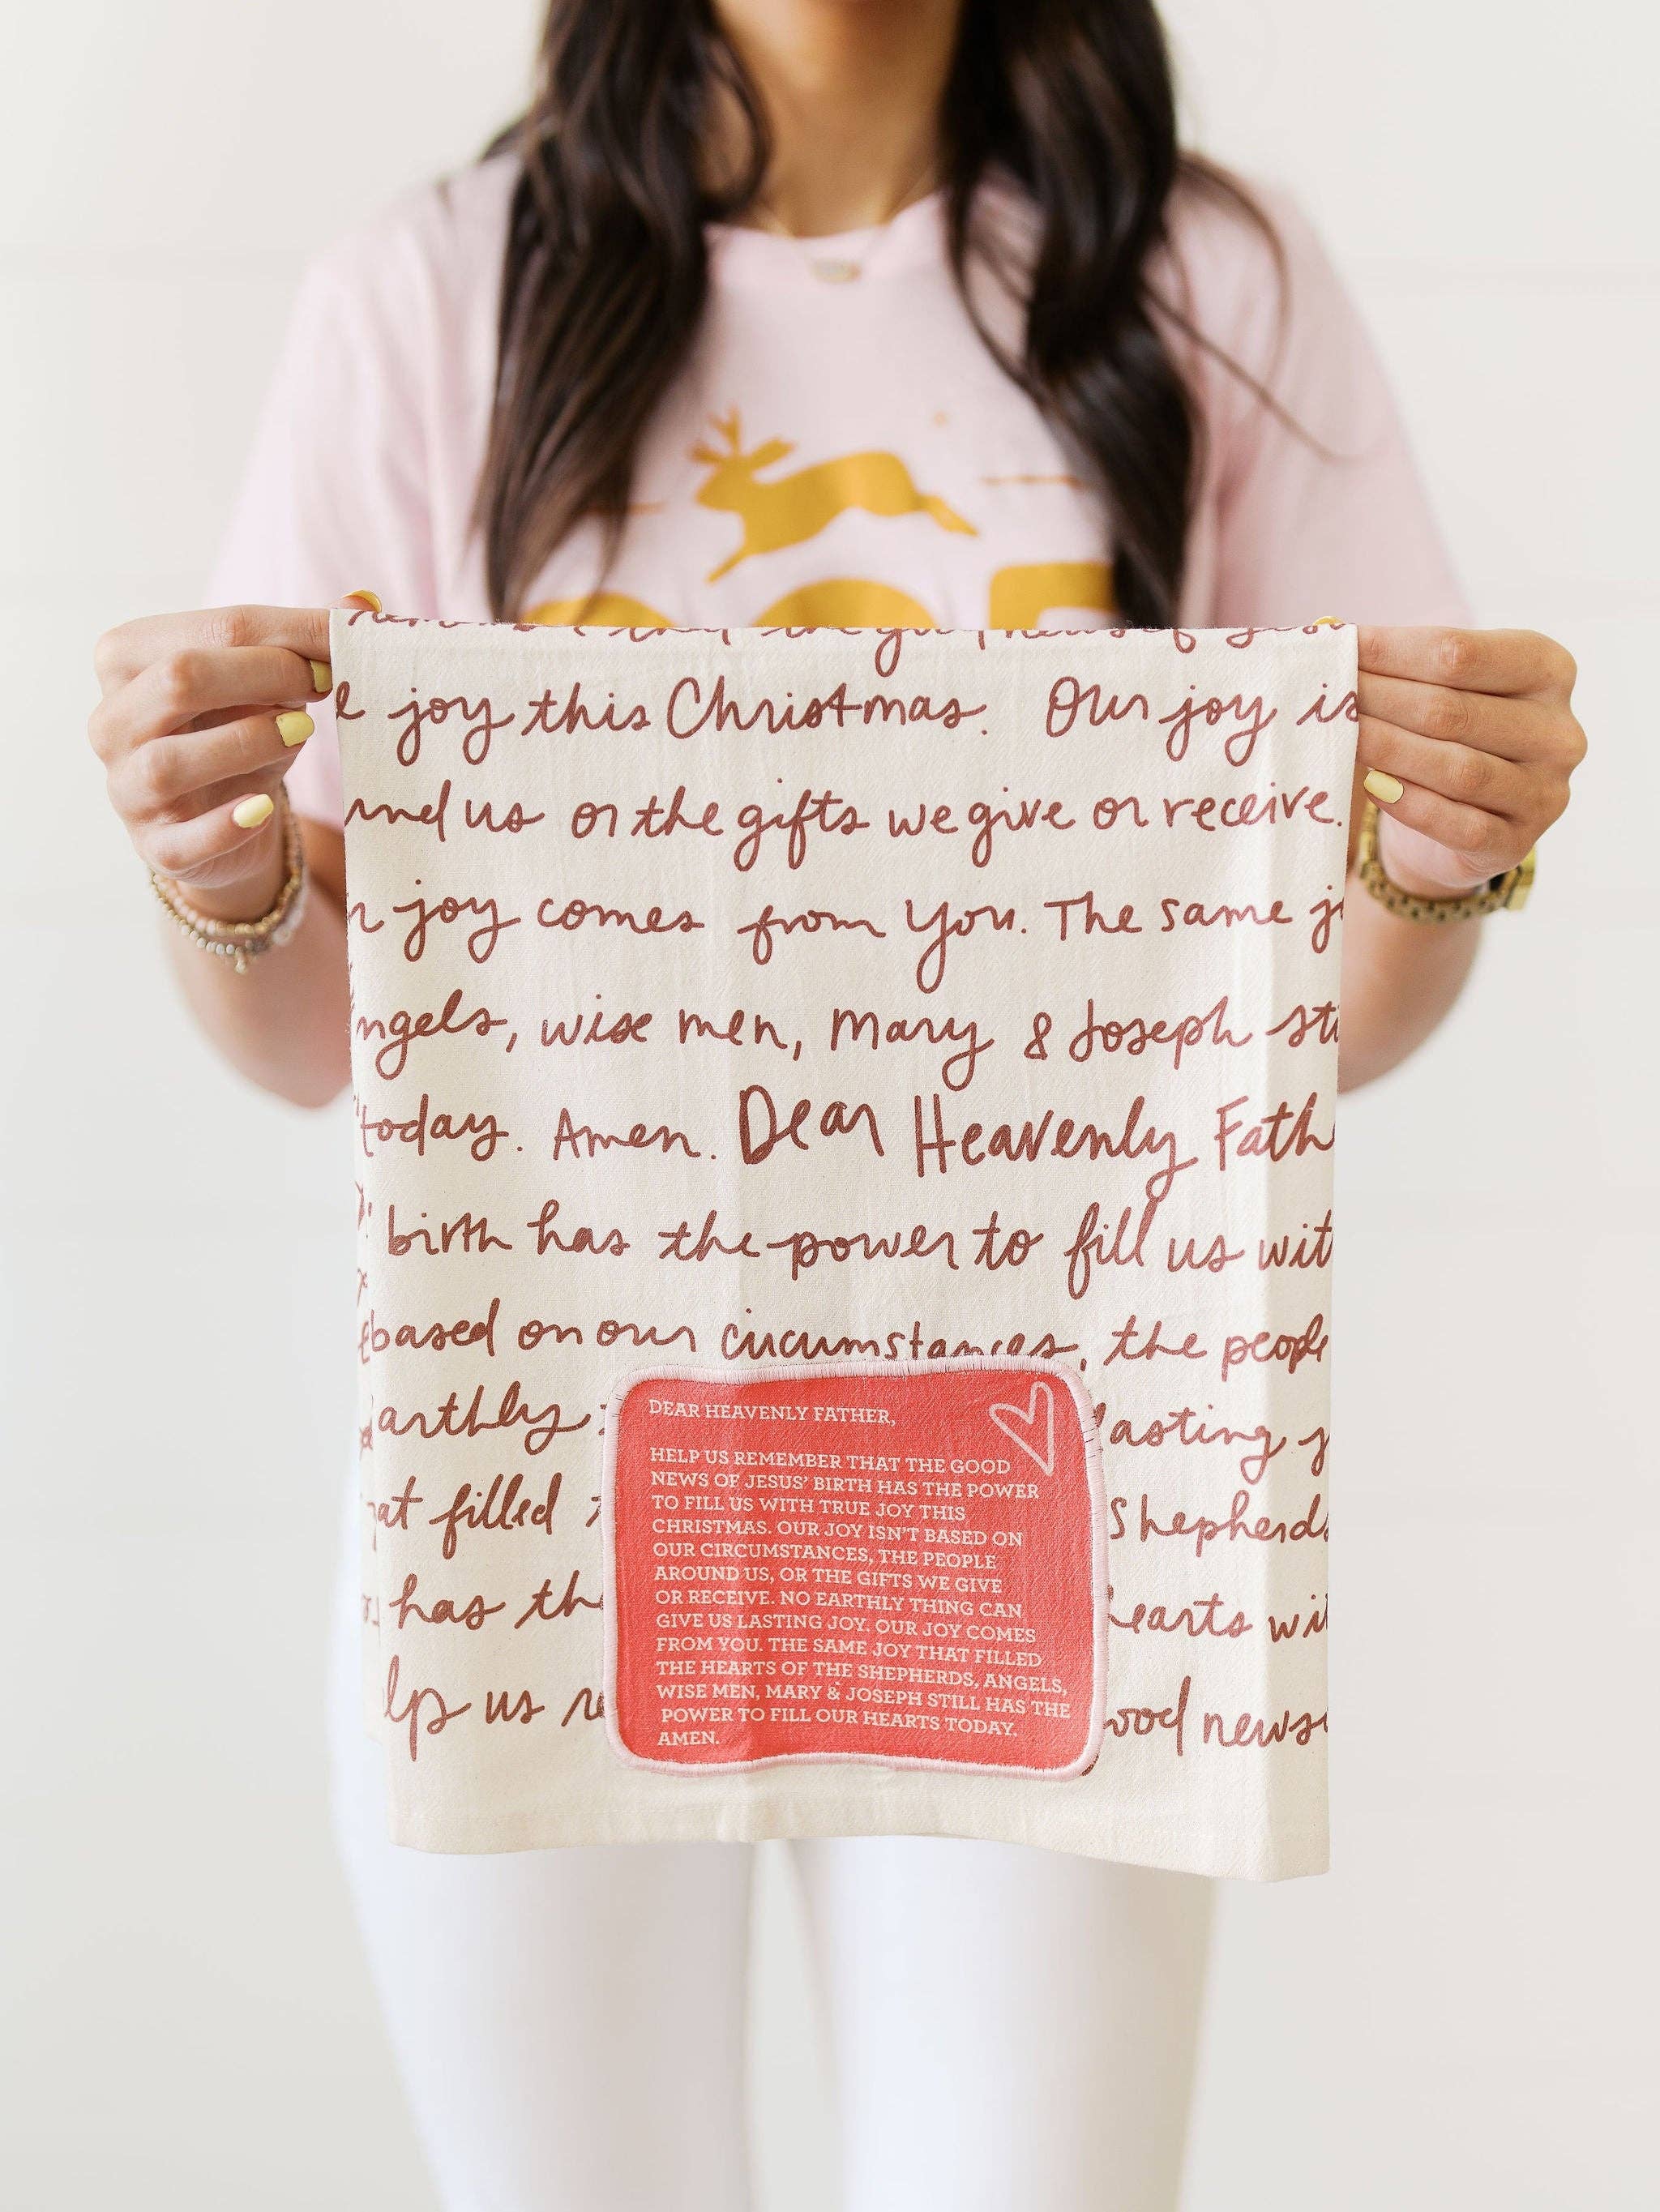 joy this Christmas. Our joy is
und us or the gifts we give or receive.
joy comes from You. The same
ngels, wise men, Mary & Joseph sti
today. Amen. Dear Heavenly Fath
birth has the power to fill us wit
based on our circumstances, the people
arthly
lasting
at filled
Shepherds
has the
hearts wit
lp us re
ood news
DEAR HEAVENLY FATHER,
HELP US REMEMBER THAT THE GOOD
NEWS OF JESUS' BIRTH HAS THE POWER
TO FILL US WITH TRUE JOY THIS
CHRISTMAS. OUR JOY ISN'T BASED ON
OUR CIRCUMSTANCES, THE PEOPLE
AROUND US, OR THE GIFTS WE GIVE
OR RECEIVE. NO EARTHLY THING CAN
GIVE US LASTING JOY. OUR JOY COMES
FROM YOU. THE SAME JOY THAT FILLED
THE HEARTS OF THE SHEPHERDS, ANGELS,
WISE MEN, MARY & JOSEPH STILL HAS THE
POWER TO FILL OUR HEARTS TODAY.
AMEN.